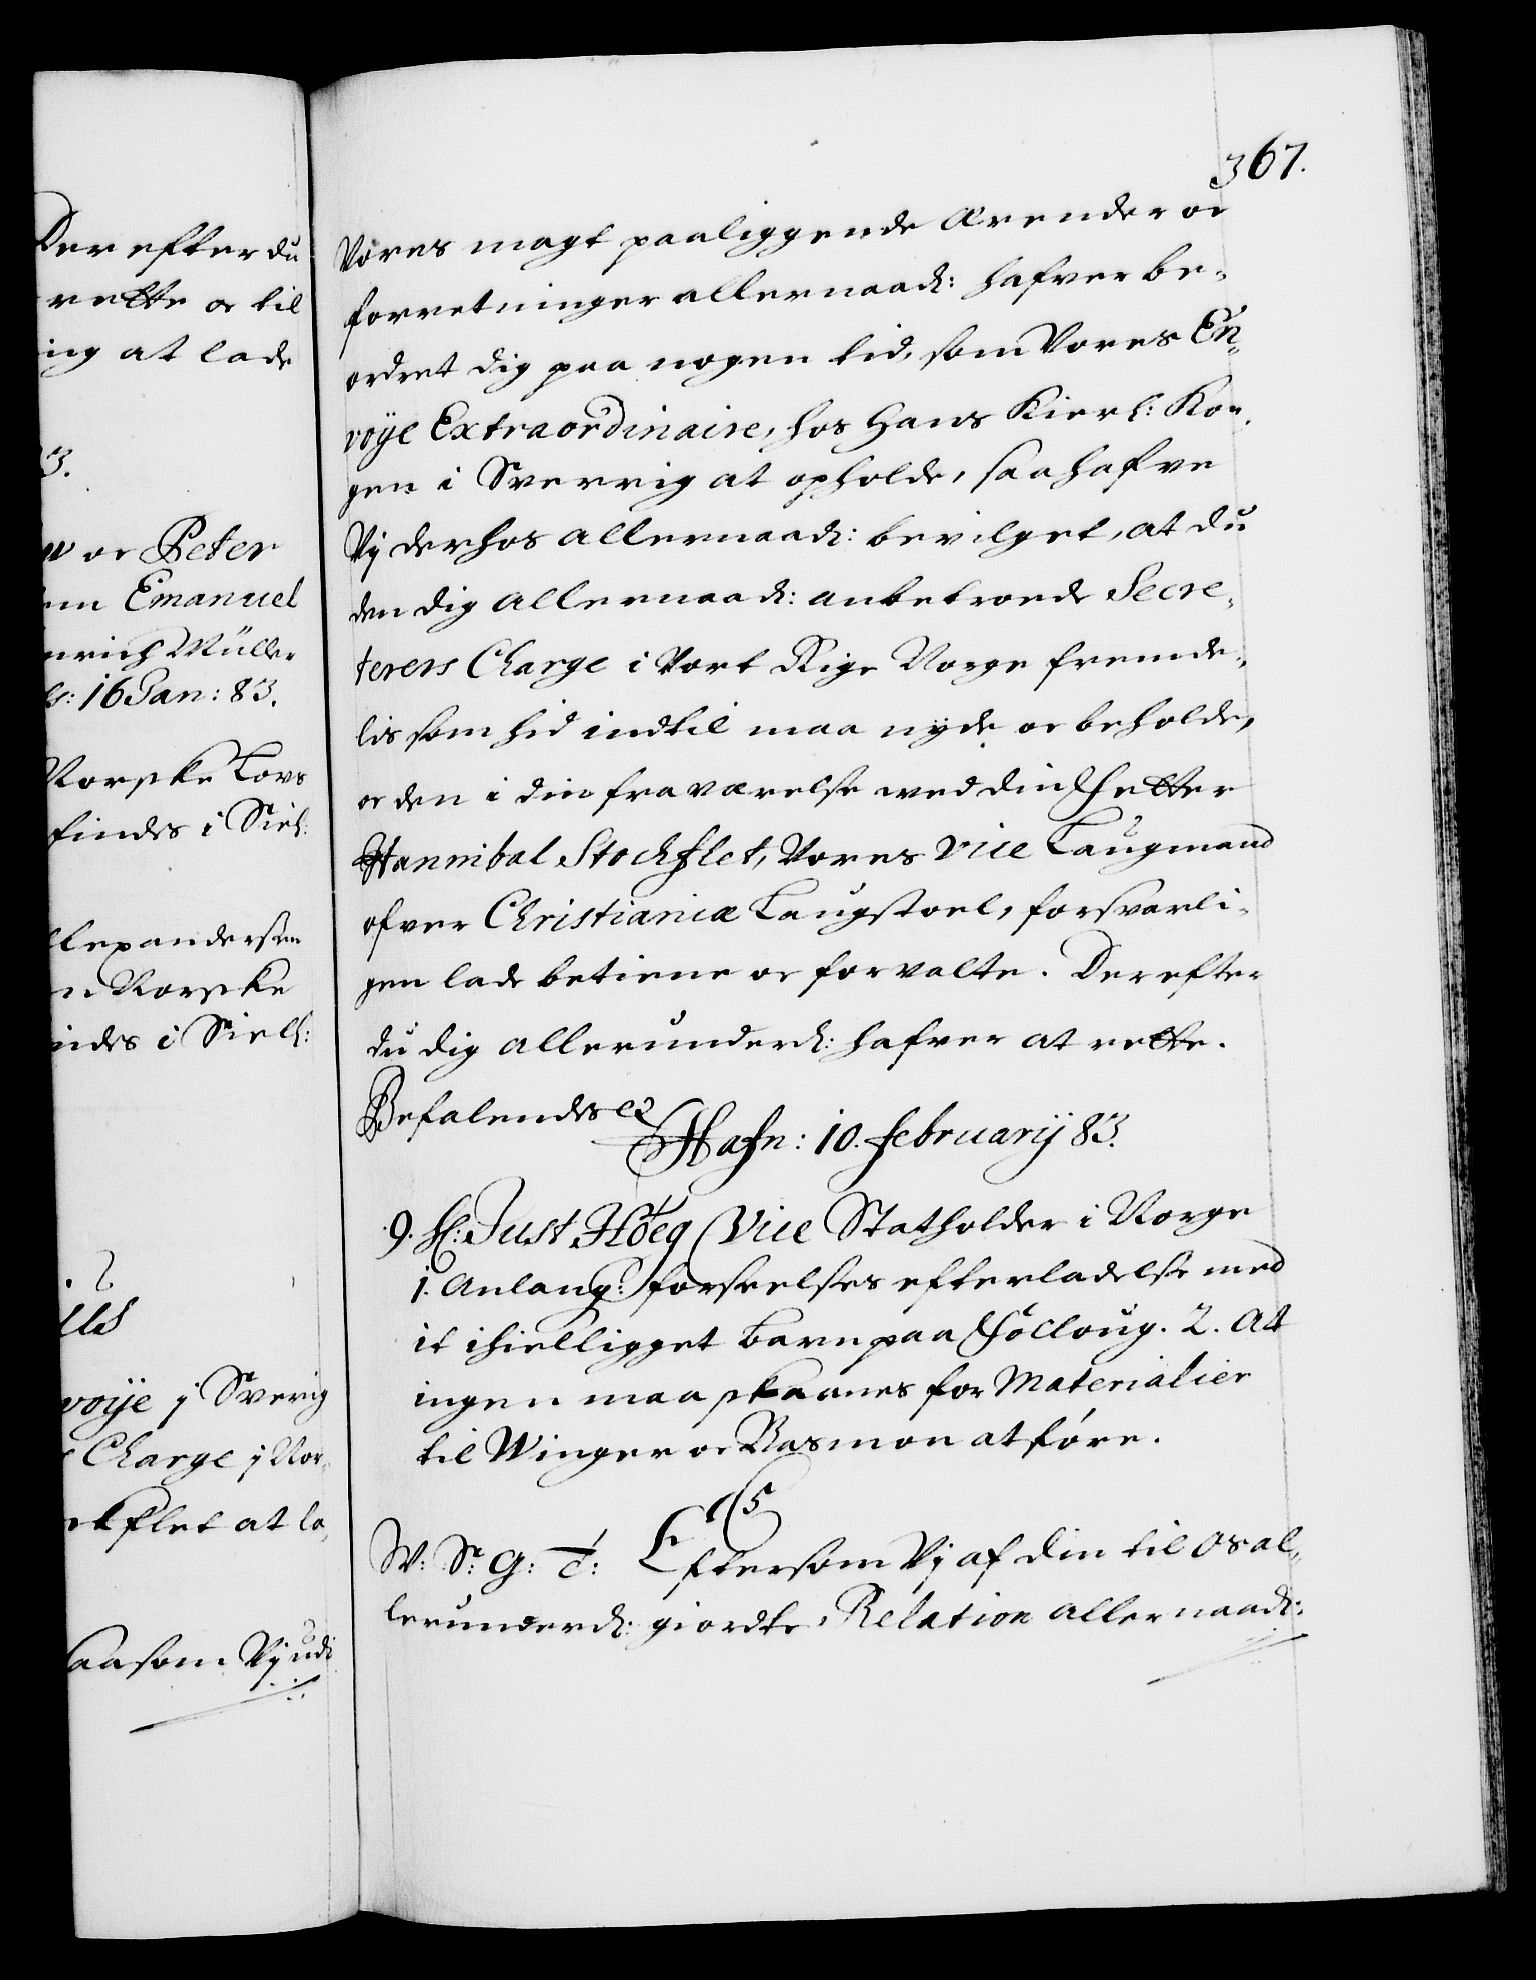 Der efter du
rette oc til
ing at lade
3.
oc Peter
Emanuel
nrich Müller
16 Jan: 83.
Norske Lovs
findes i Siel:
lexandersen
n Norske
indes i Siell:
voije j Sverrig
Charge j Nor-
kflet at la-
aasom Vj udi
367.
Vores magt paaliggende ærender oc
forretninger allernaad: hafver be-
ordret dig paa nogen tid, som Vores En-
voye Extraordinaire, hos Hans Kierl: Kon-
gen i Sverrig at opholde, saa hafve
Vj derhos allernaad: bevilget, at du
den dig allernaad: anbetroede Secre-
terers Charge i Vort Rige Norge fremde-
lis som hid indtil maa nyde oc beholde,
oc den i din fraværelse ved din Fetter
Hannibal Stockflet, Vores Vice Laugmand
ofver Christianiæ Laugstoel, forsvarli-
gen lade betiene oc forvalte. Der efter
du dig allerunderd: hafver at rette.
Befalendes ec
Hafn: 10. februarij 83.
9. H: Just Høeg Vice Statholder i Norge
1. Anlang: forseelses efterladelse med
it ihielligget barn paa Folloug. 2. At
ingen maa skaanes for Materialier
til Winger oc Basmon at føre.
C 5
W: S: G: T: Eftersom Vj af din til os al-
lerunderd: giordte Relation allernaad: